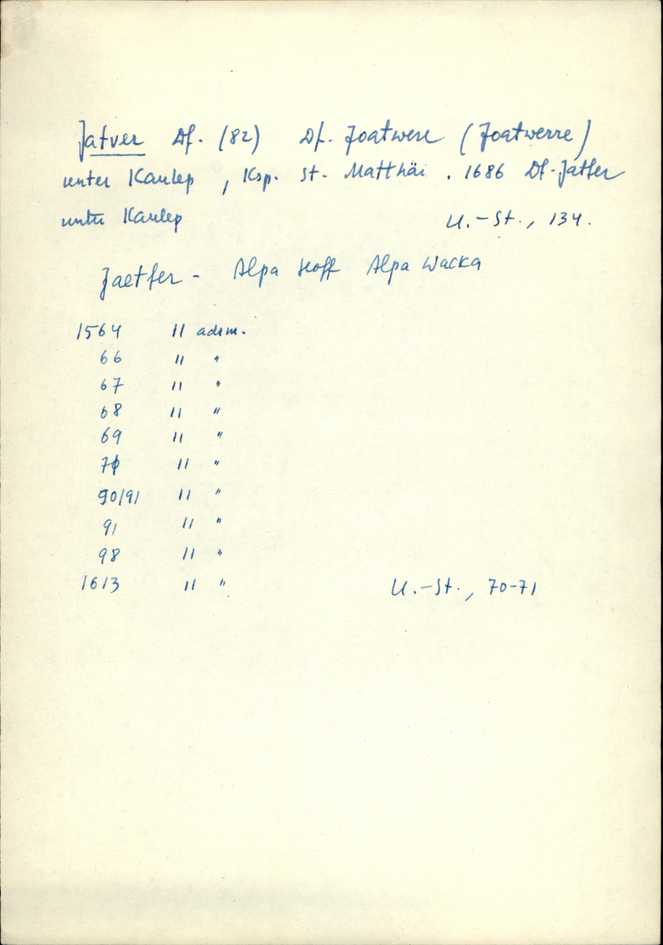 Jatver Df. (82) Df. Joatwere (Joatwerre)
unter Kaulep, Ksp. St. Matthäi. 1686 Df-Jatfer
unter Kaulep U.-St., 134.
Jaetfer - Alpa Hoff Alpa Wacka
1564 11 adrm.
66 11 "
67 11 "
68 11 "
69 11 "
70 11 "
90/91 11 "
91 11 "
98 11 "
1613 11 " U.-St., 70-71